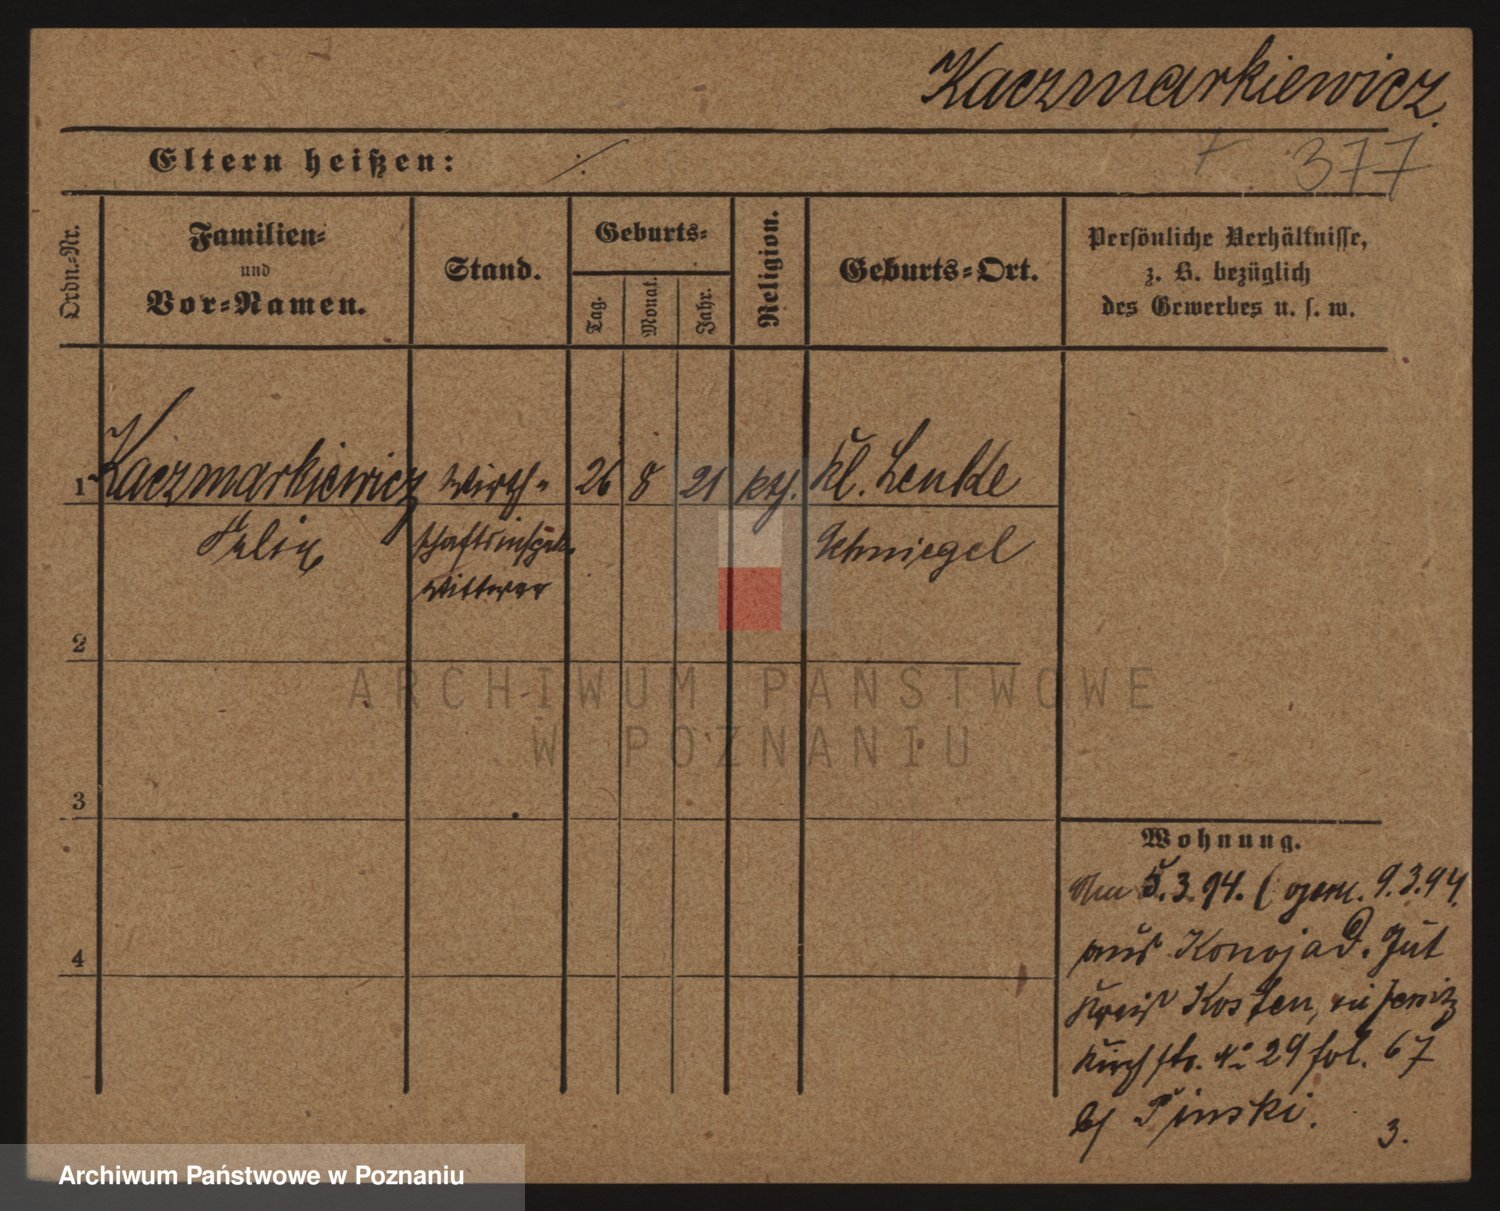 Kaczmarkiewicz.
Eltern heißen: ·/.
+ 377
Ordn.-Nr.
Familien-
und
Vor-Namen.
Stand.
Geburts-
Tag.
Monat.
Jahr.
Religion.
Geburts-Ort.
Persönliche Verhältnisse,
z. B. bezüglich
des Gewerbes u. s. w.
1 Kaczmarkiewicz Wirth- 26 8 21 kth. Kl. Lenkte
Felix schaftsinspek. Schmiegel
Wittwer
2
3
4
Wohnung.
Am 5.3.94. (gem. 9.3.94.
aus Konojad. Gut
Kreis Kosten, in Jersitz
Kirchstr. No 29 fol. 67
bei Pinski.
3.
ARCHIWUM PAŃSTWOWE
W POZNANIU
Archiwum Państwowe w Poznaniu